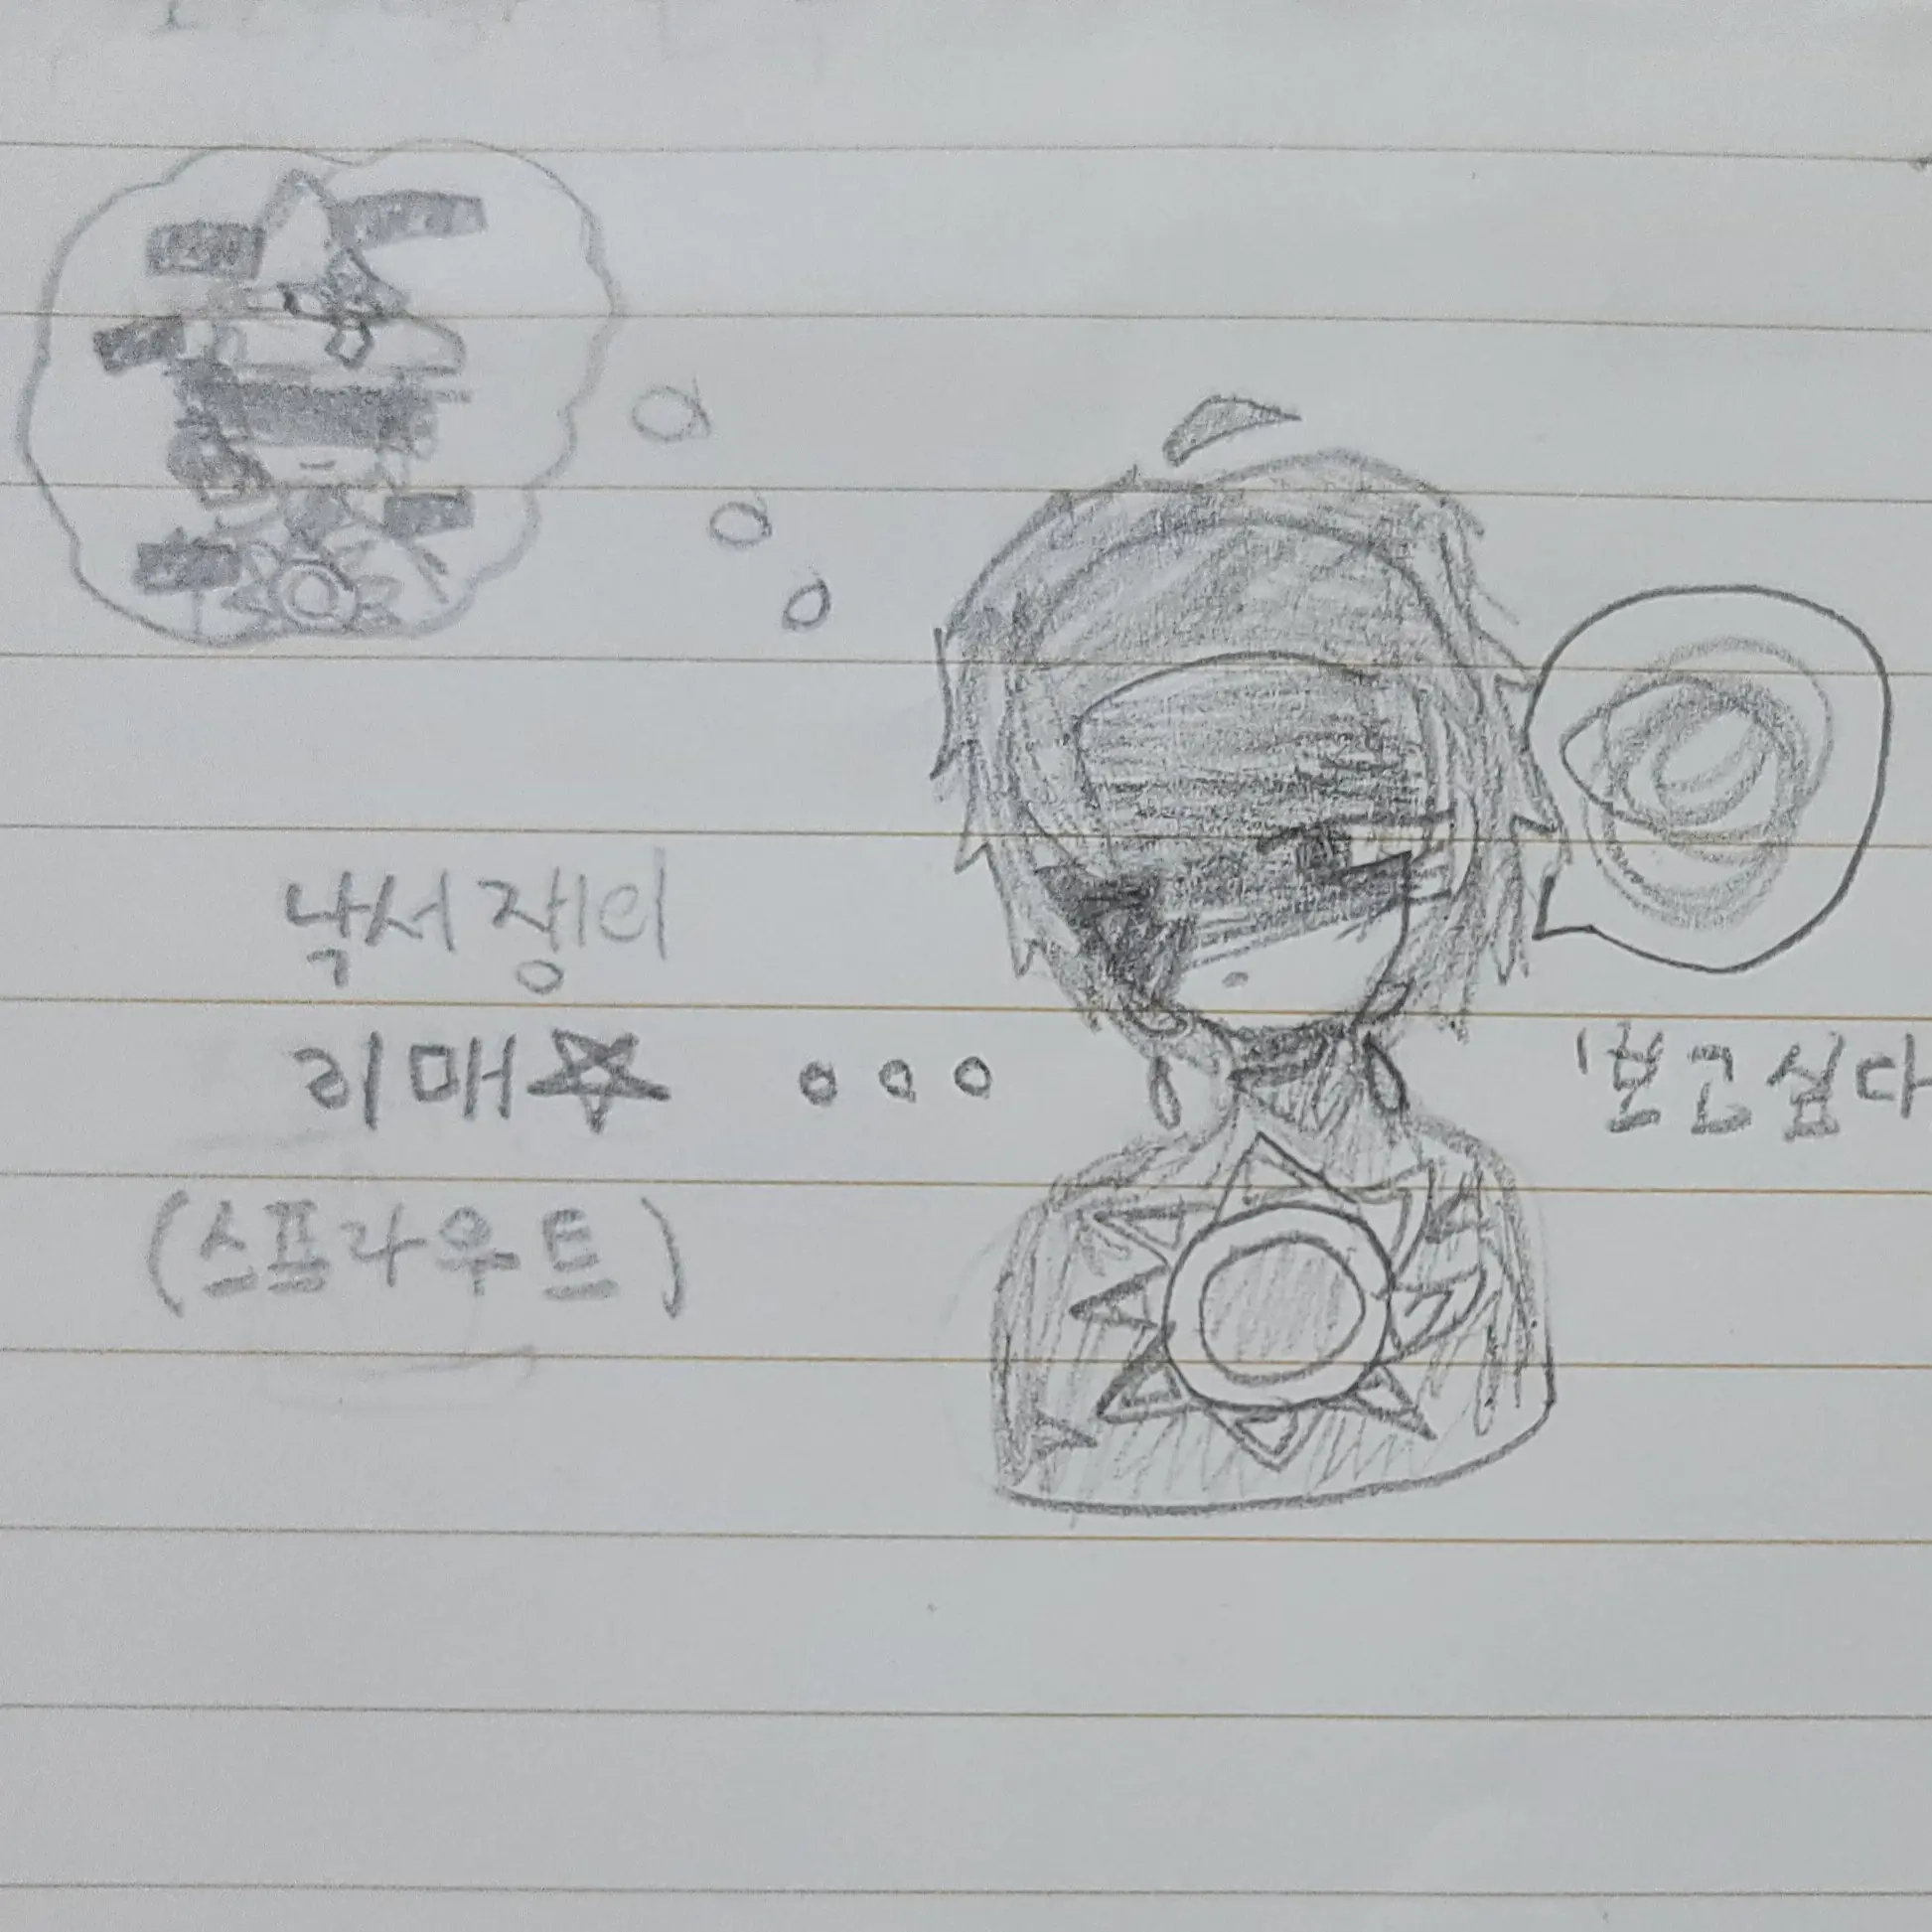 낙서쟁이
리매☆ ○ ○ ○
'보고싶다
(스프라우트)